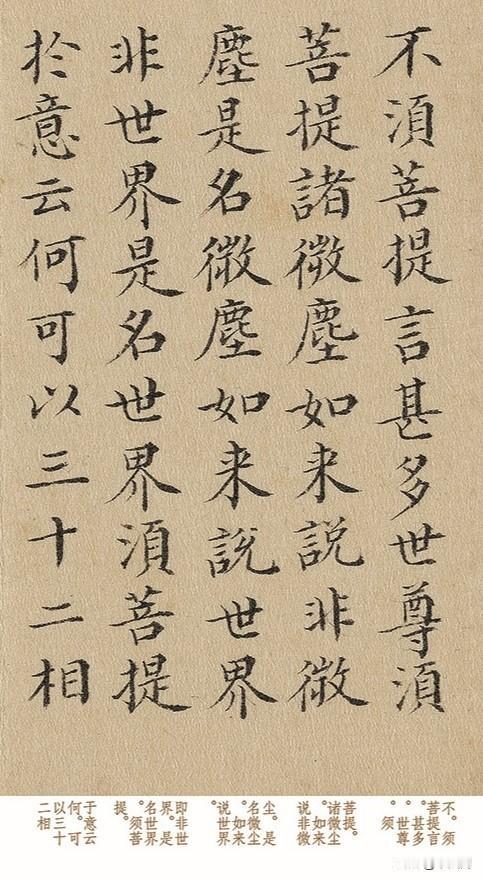 不須菩提言甚多世尊須
菩提諸微塵如来説非微
塵是名微塵如来說世界
非世界是名世界須菩提
扵意云何可以三十二相
不。须
菩提言
。甚多
。世尊
。须
菩提。
诸微尘
。如来
说非微
尘。是
名微尘
。如来
说世界
即非世
界。是
名世界
。须菩
提。
于意云
何。可
以三十
二相